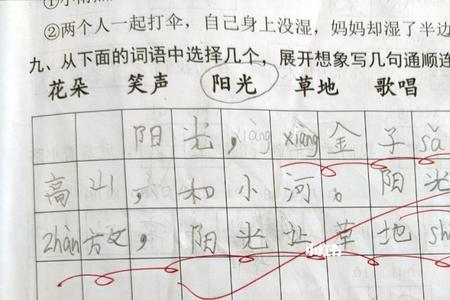 ②两个人一起打伞，自己身上没湿，妈妈却湿了半边
九、从下面的词语中选择几个，展开想象写几句通顺连
花朵 笑声 阳光 草地 歌唱
阳光，xiàng金子sǎ
高山，和小河。阳光
zhàn方文，阳光让草地sh
小红书